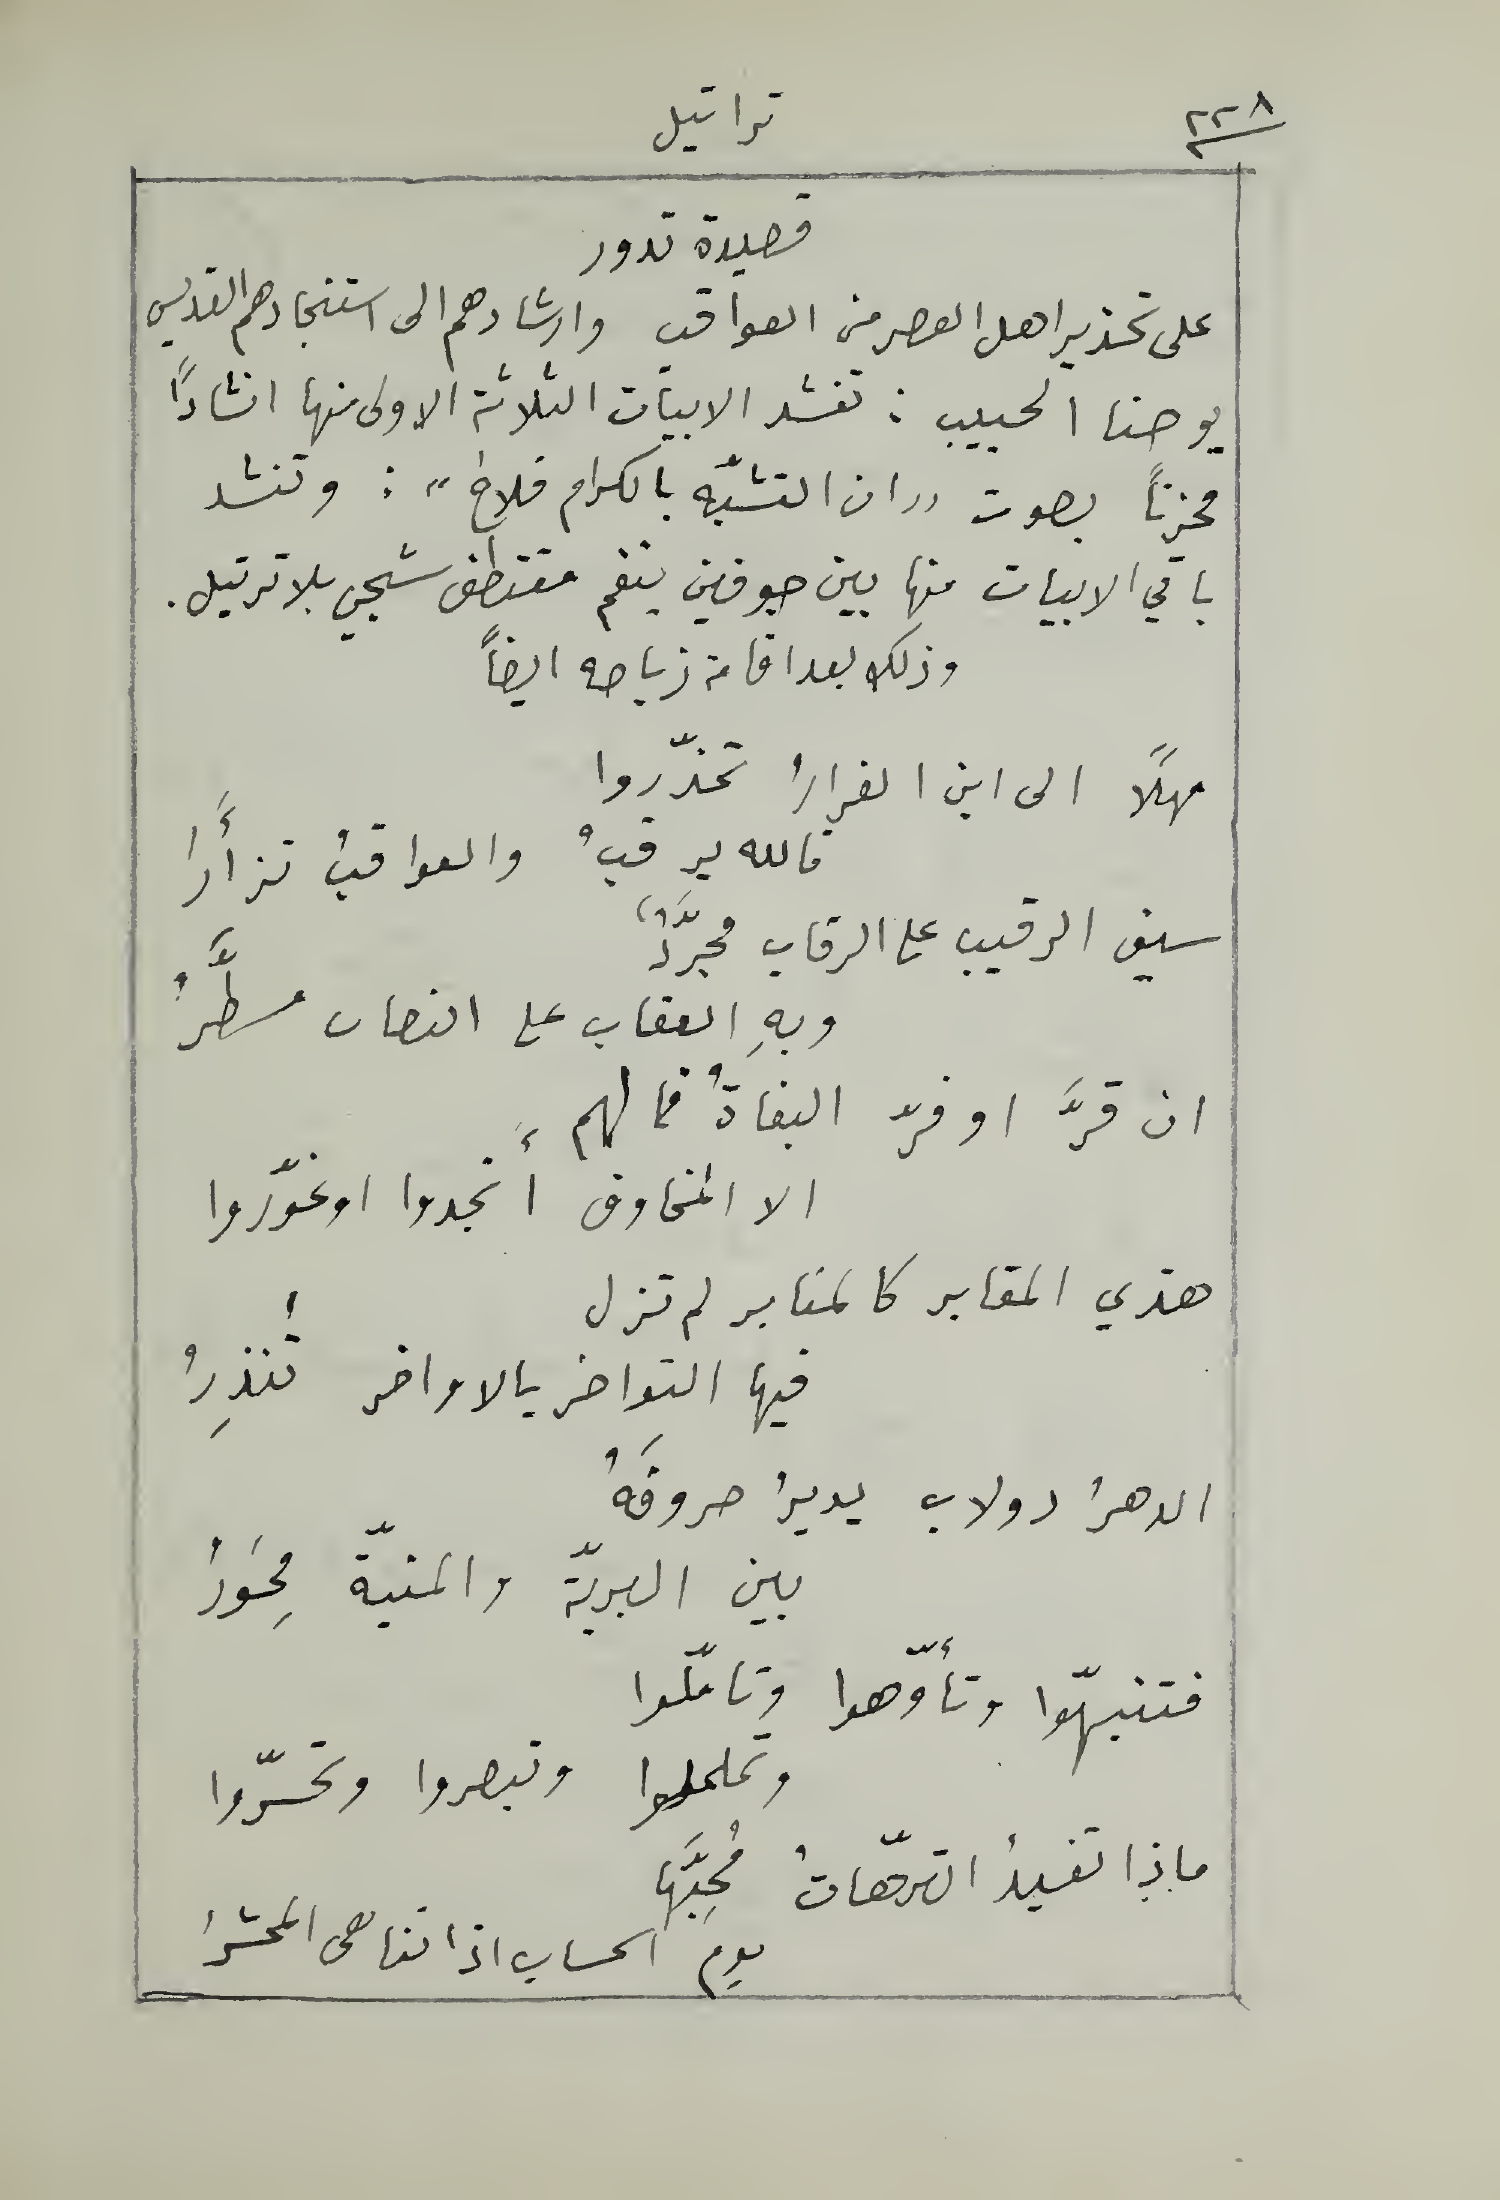 ٢٢٨
تراتيل
قصيدة تدور
على تحذير اهل العصر من العواقب وارشادهم الى استنجادهم القديس
يوحنا الحبيب : تنشد الابيات الثلاثة الاولى منها انشادًا
محزنًا بصوت ,,ان التشبّه بالكرام فلاح" : وتنشد
باقي الابيات منها بين جوقين بنغم مقتطف شجي بلا ترتيل.
وذلك بعد اقامة زياحه ايضًا
مهلًا الى اين الفرارُ تحذّروا
فالله يرقبُ والعواقبُ تزأَرُ
سيف الرقيب على الرقاب مجرَّدٌ
وبهِ العقاب على النصاب مسطَّرُ
ان قرَّ او فرّ البغاةُ فما لهم
الا المخاوف أَنجدوا او غوّروا
هذي المقابر كالمنابر لم تزل
فيها النواخر بالاواخر تُنذِرُ
الدهرُ دولاب يديرُ صروفَهُ
بين البريّة والمنيّة مِحوَرُ
فتنبهّوا وتأوّهوا وتاملّوا
وتململوا وتبصروا وتحسّروا
ماذا تفيدُ الترّهاتُ مُحِبَّها
يومِ الحساب اذا تناهى المحشرُ